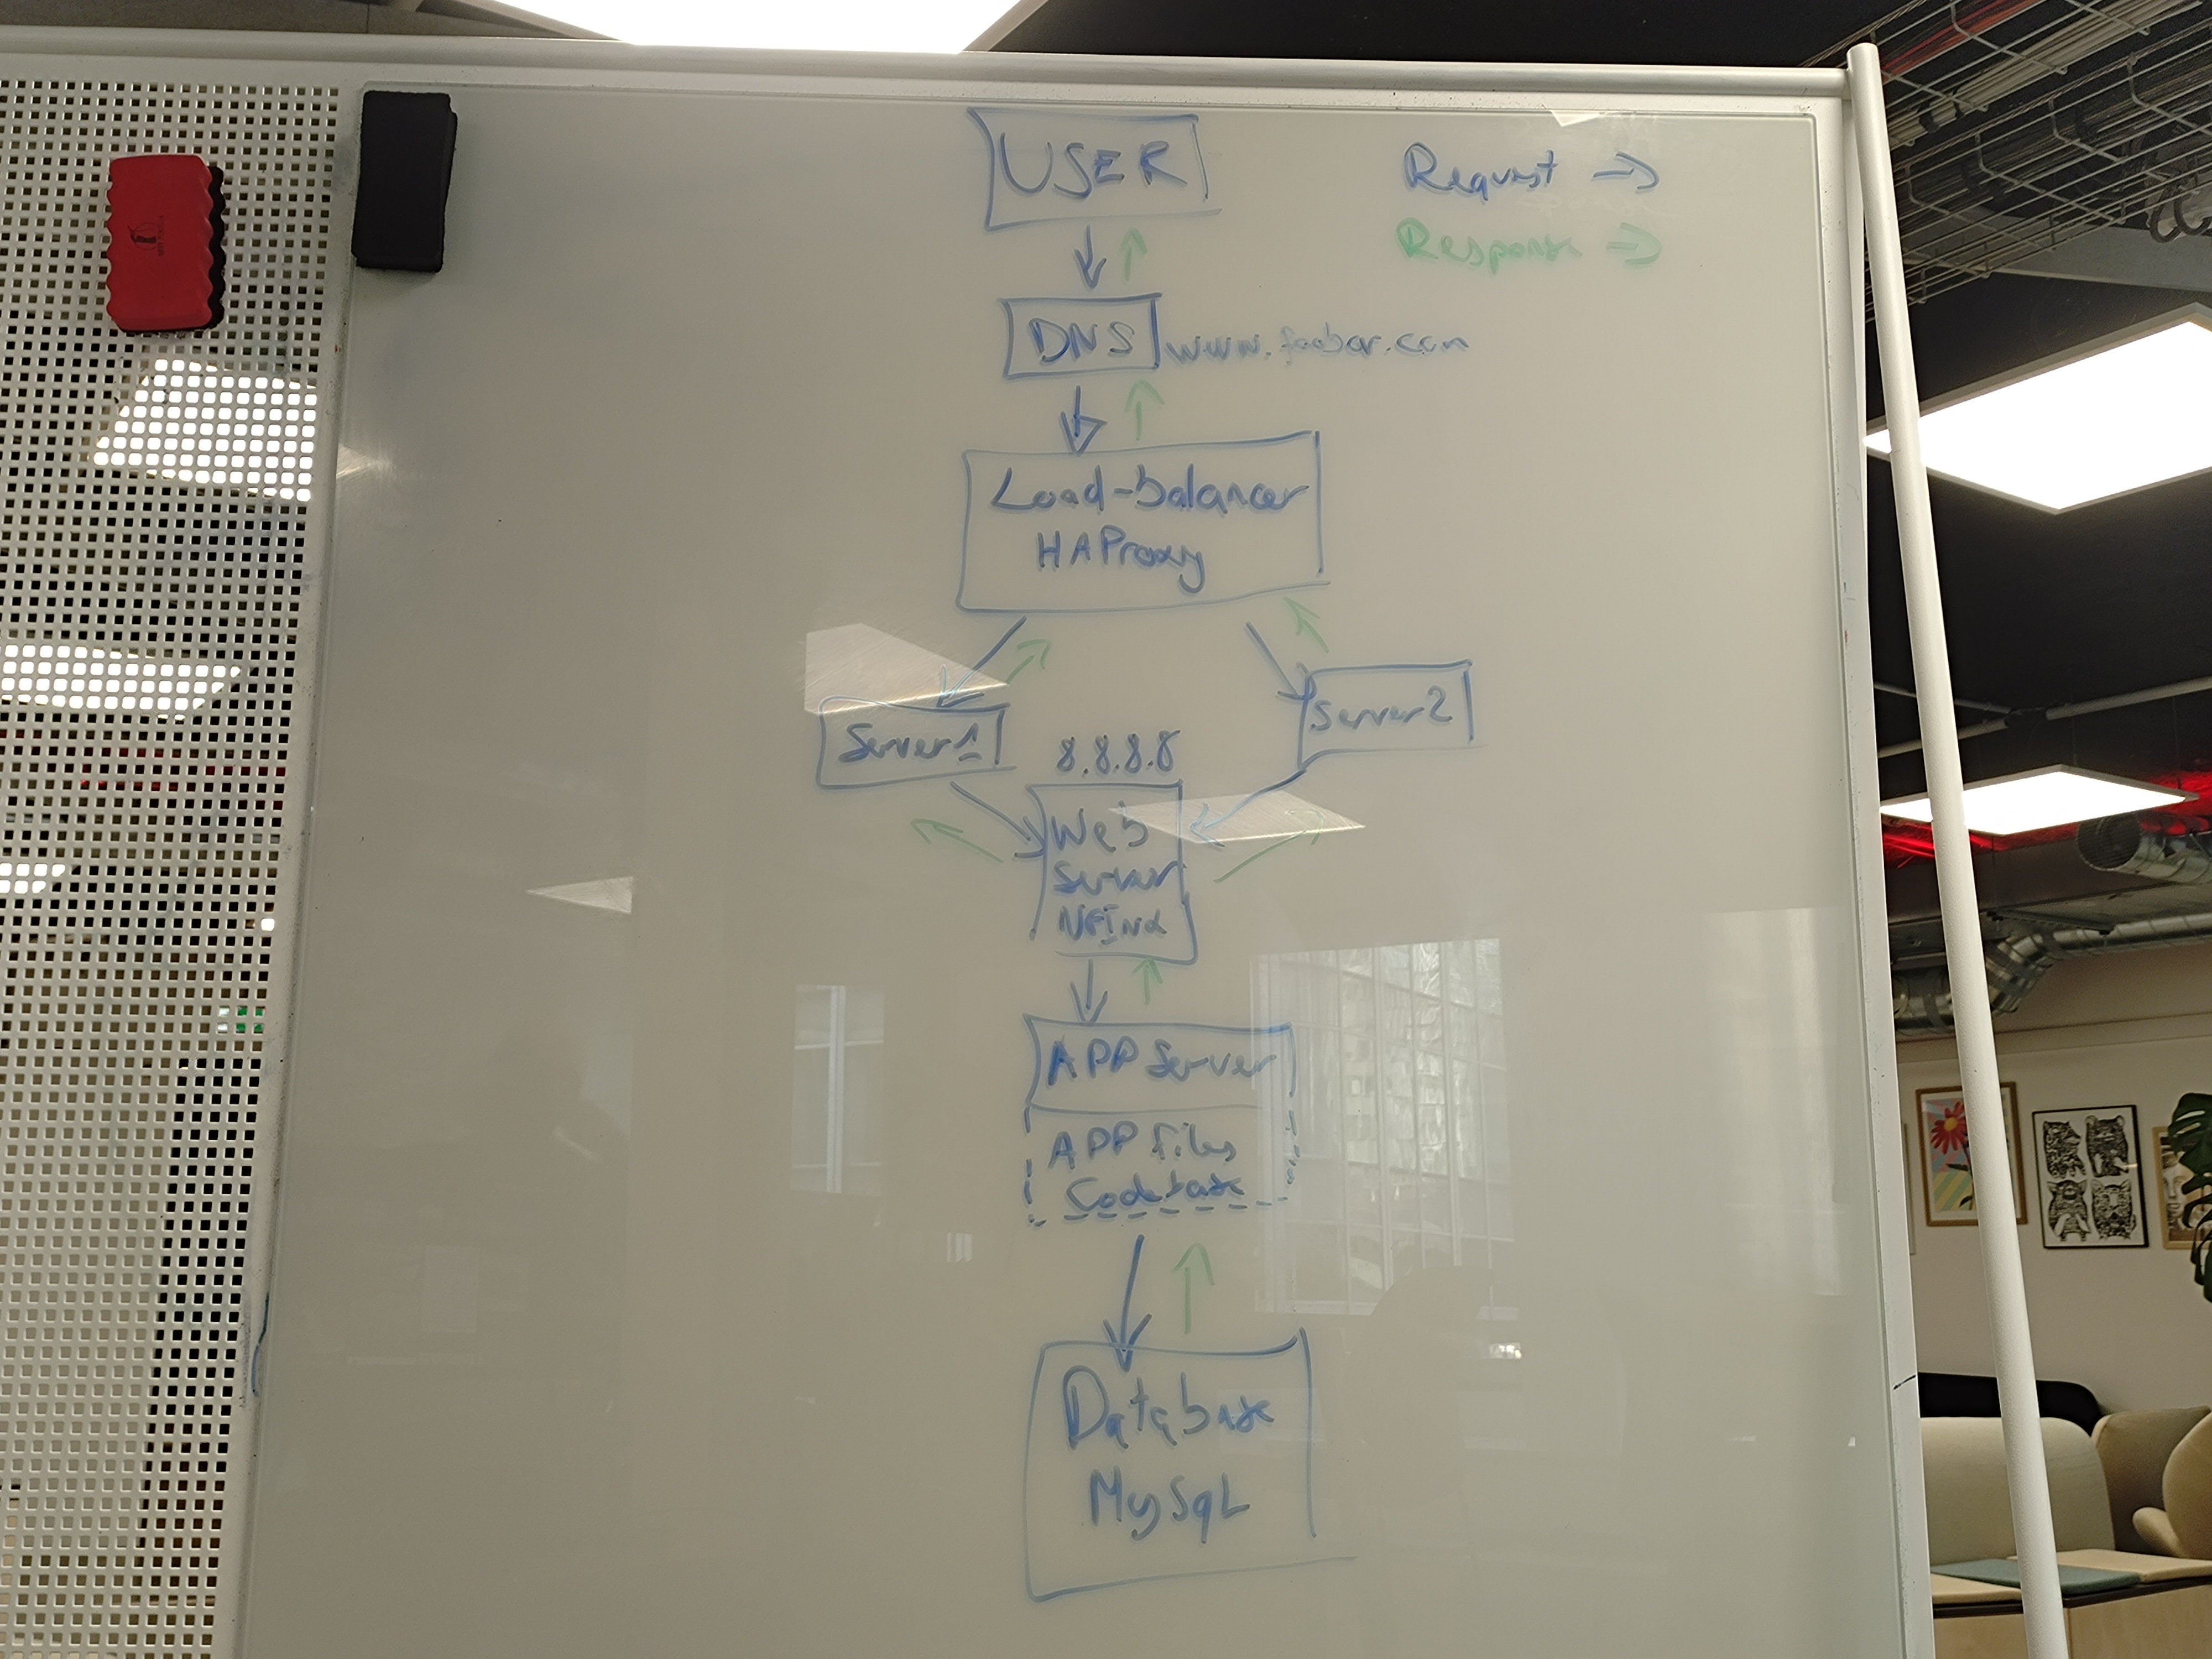 USER
Request →
Response →
DNS www.foobar.com
Load-balancer
HAProxy
Server1
Server2
8.8.8.8
Web
Server
NGInx
APP Server
APP files
Codebase
Database
MySqL